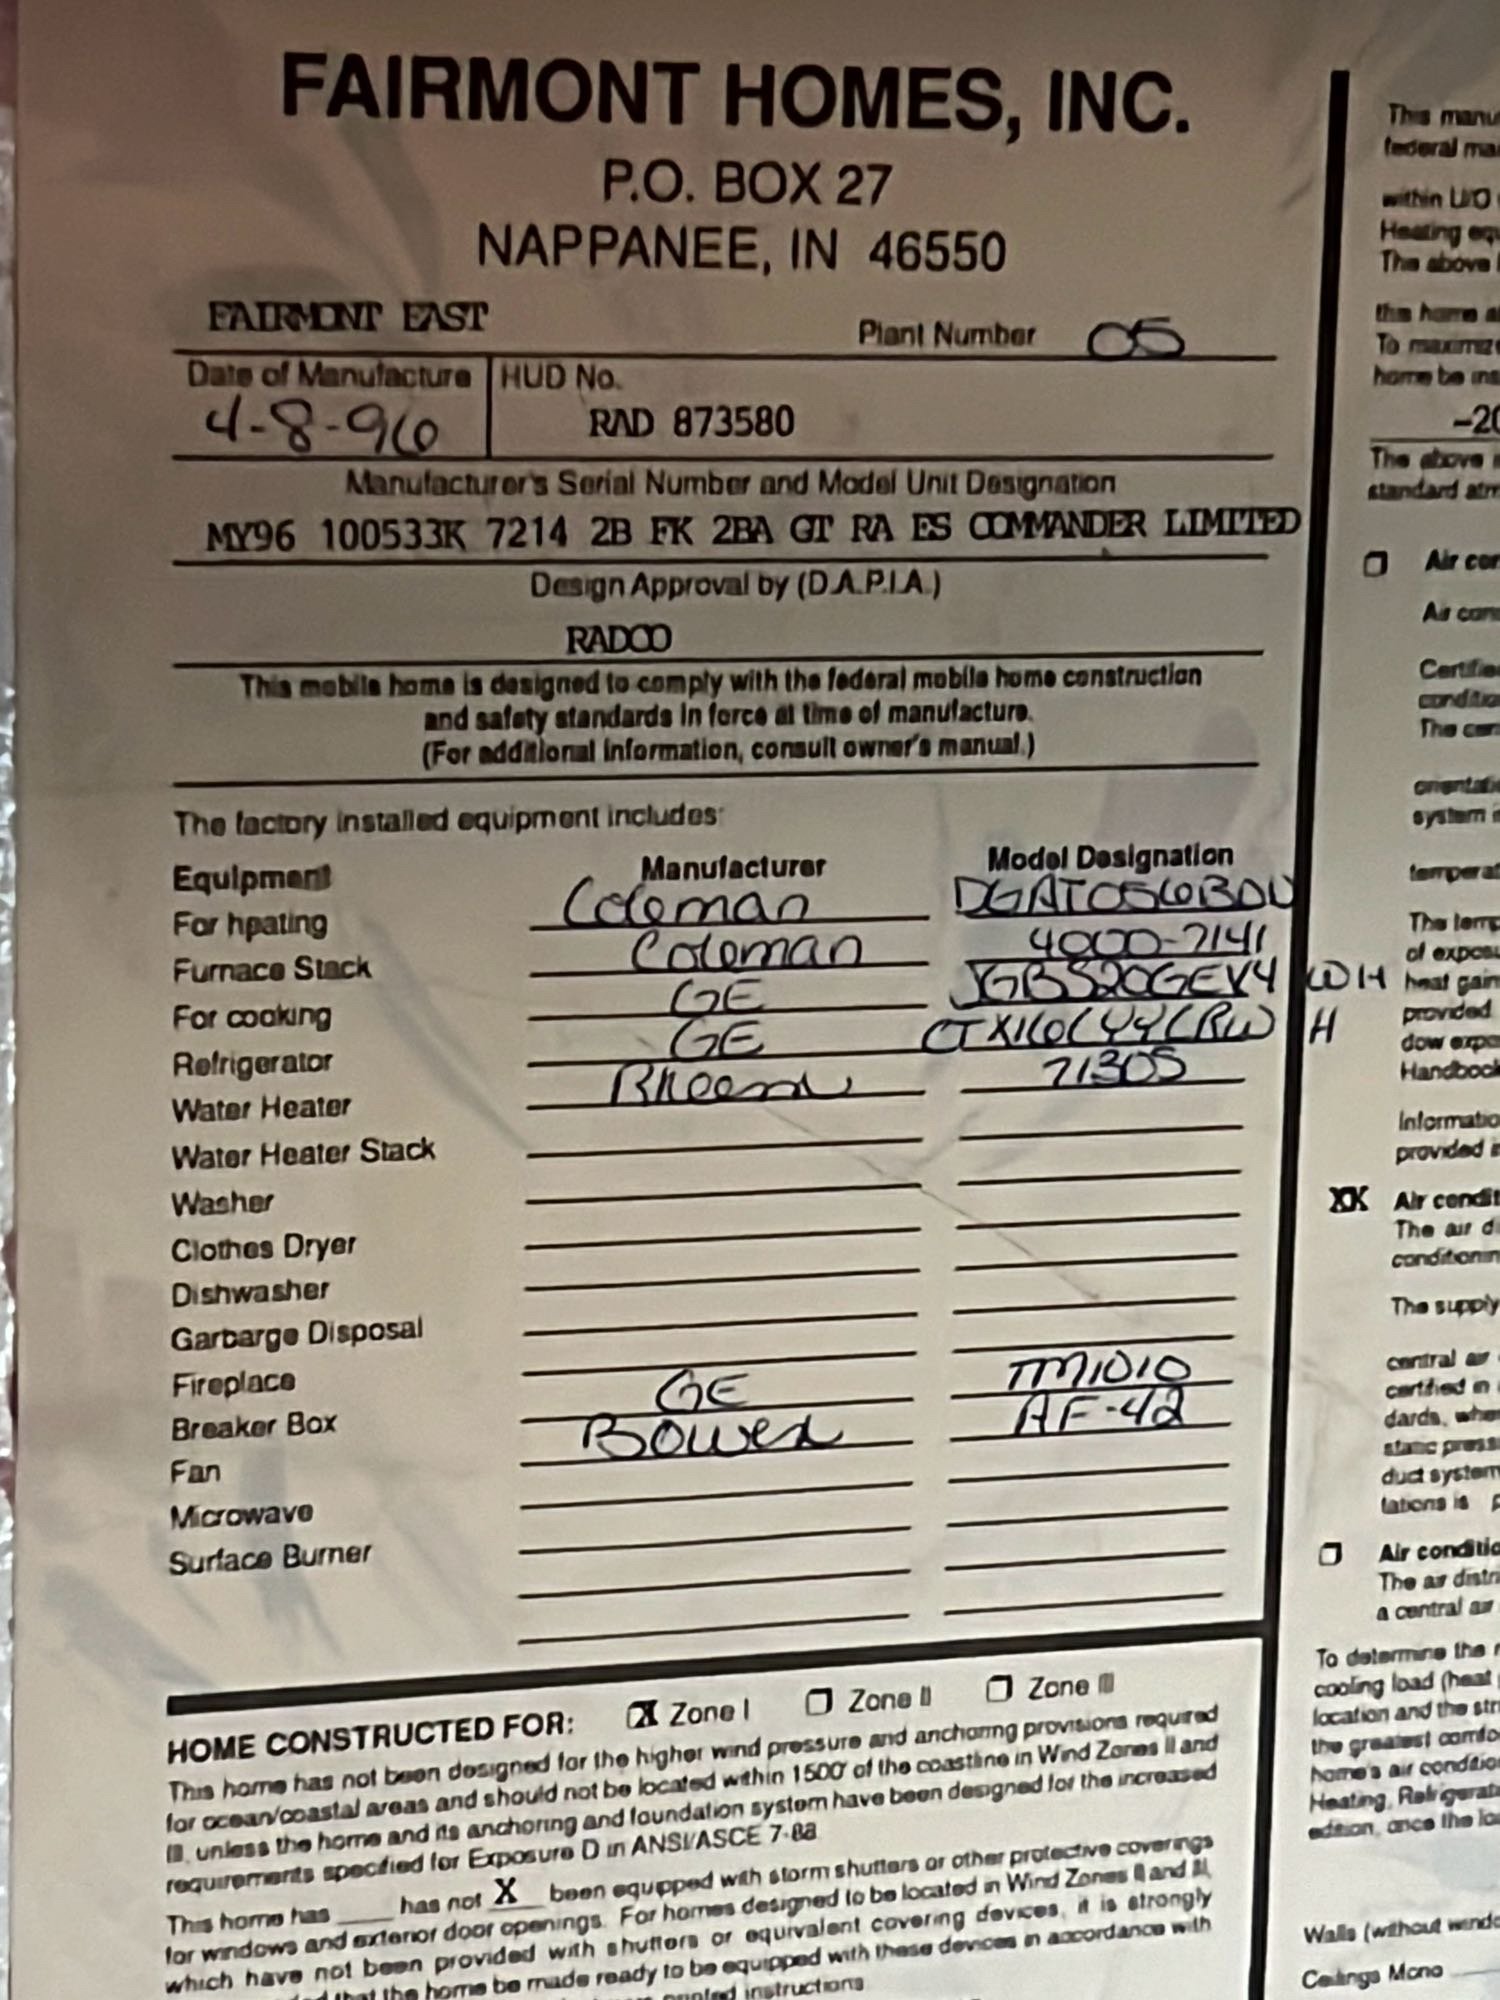 FAIRMONT HOMES, INC.
P.O. BOX 27
NAPPANEE, IN 46550
FAIRMONT EAST
Plant Number 05
Date of Manufacture HUD No.
4-8-96 RAD 873580
Manufacturer's Serial Number and Model Unit Designation
MY96 100533K 7214 2B FK 2BA GT RA ES COMMANDER LIMITED
Design Approval by (D.A.P.I.A.)
RADCO
This mobile home is designed to comply with the federal mobile home construction
and safety standards in force at time of manufacture.
(For additional information, consult owner's manual.)
The factory installed equipment includes:
Equipment Manufacturer Model Designation
For heating Coleman DGAT056BDU
Furnace Stack Coleman 4000-7141
For cooking GE JGBS20GEV4 WH
Refrigerator GE CTX16CYYLRW H
Water Heater Rheem 7130S
Water Heater Stack
Washer
Clothes Dryer
Dishwasher
Garbarge Disposal
Fireplace
Breaker Box GE TM1010
Fan Bowen AF-42
Microwave
Surface Burner
HOME CONSTRUCTED FOR: X Zone I Zone II Zone III
This home has not been designed for the higher wind pressure and anchoring provisions required
for ocean/coastal areas and should not be located within 1500' of the coastline in Wind Zones II and
III, unless the home and its anchoring and foundation system have been designed for the increased
requirements specified for Exposure D in ANSI/ASCE 7-88
This home has ____ has not X been equipped with storm shutters or other protective coverings
for windows and exterior door openings. For homes designed to be located in Wind Zones II and III,
which have not been provided with shutters or equivalent covering devices, it is strongly
that the home be made ready to be equipped with these devices in accordance with
printed instructions
This manu
federal ma
within U/O
Heating equ
The above
this home a
To maximize
home be ins
-20
The above
standard atm
Air con
Air cond
Certifie
conditio
The cen
orientati
system i
temperat
The temp
of exposu
heat gain
provided
dow expo
Handbook
Informatio
provided i
XX Air condit
The air d
conditionin
The supply
central air
certified in
dards, when
static press
duct system
lations is
Air conditio
The air distri
a central air
To determine the
cooling load (heat
location and the str
the greatest comfo
home's air conditio
Heating, Refrigerati
edition, once the lo
Walls (without windo
Ceilings Mono